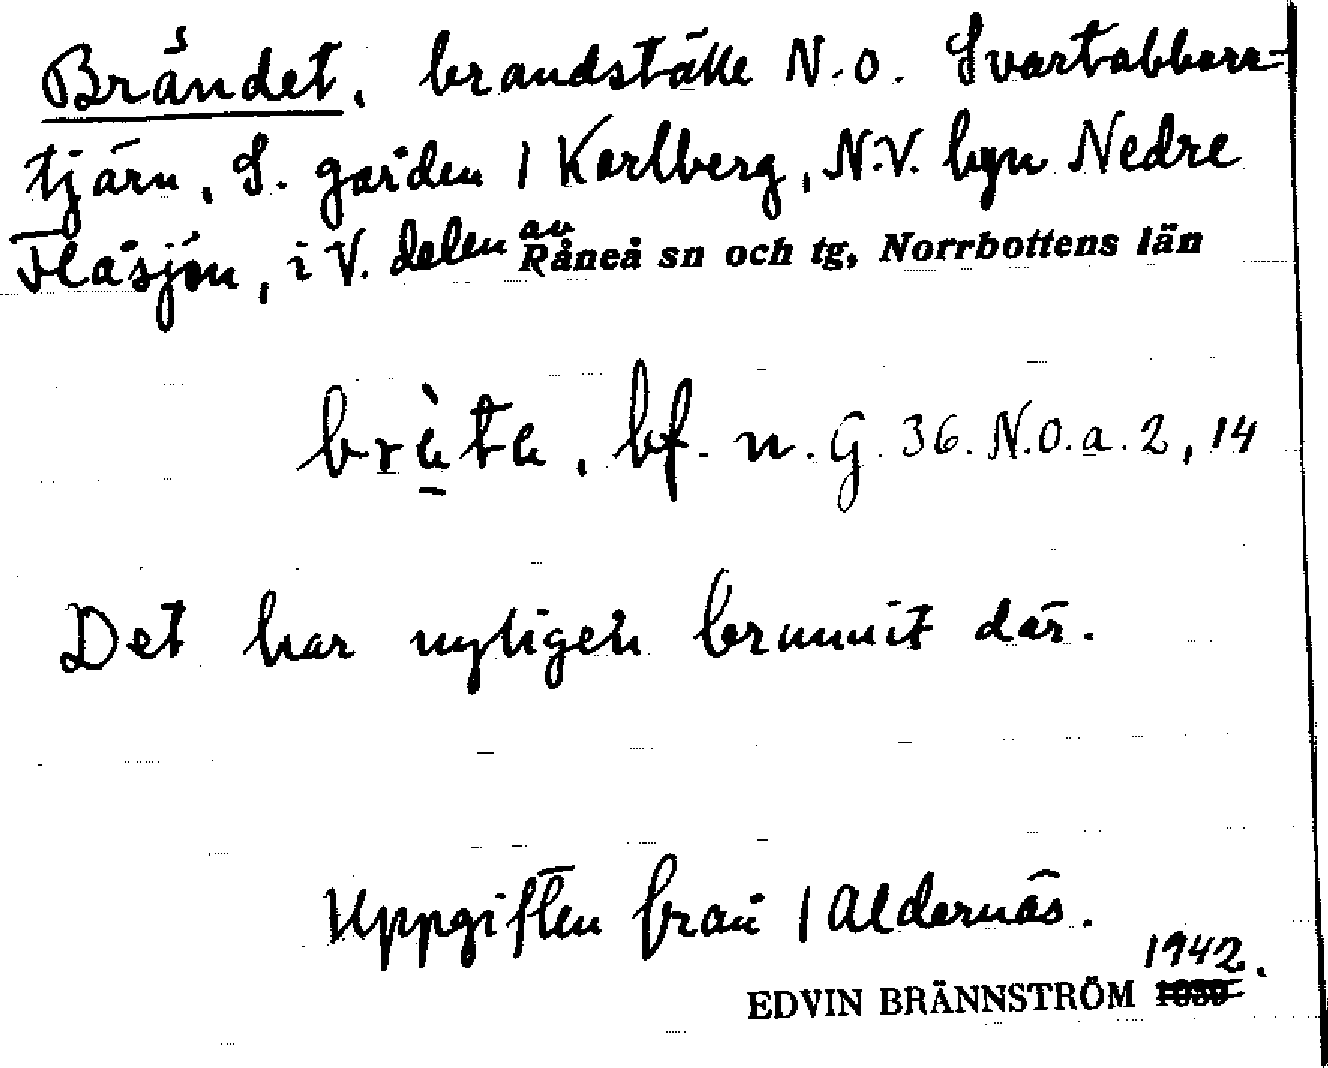 Brändet, brandställe N.O. Svartabborr-
tjärn, S. gården 1 Karlberg, N.V. byn Nedre
Flåsjön, i V. delen av Råneå sn och tg, Norrbottens län
bf. n. G. 36. N.O.a. 2, 14
Det har nyligen brunnit där.
Uppgiften från 1 Aldernäs.
1942.
EDVIN BRÄNNSTRÖM